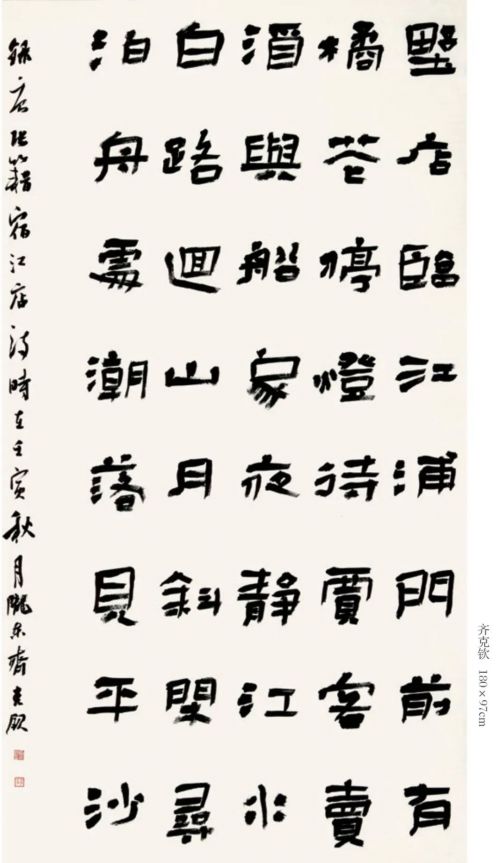 墅店臨江浦門前有
橘花停燈待賈客賣
酒與船家夜靜江水
白路迴山月斜閑尋
泊舟處潮落見平沙
錄唐張籍宿江店詩時在壬寅秋月隴東齊克欽
齐克钦 180×97cm